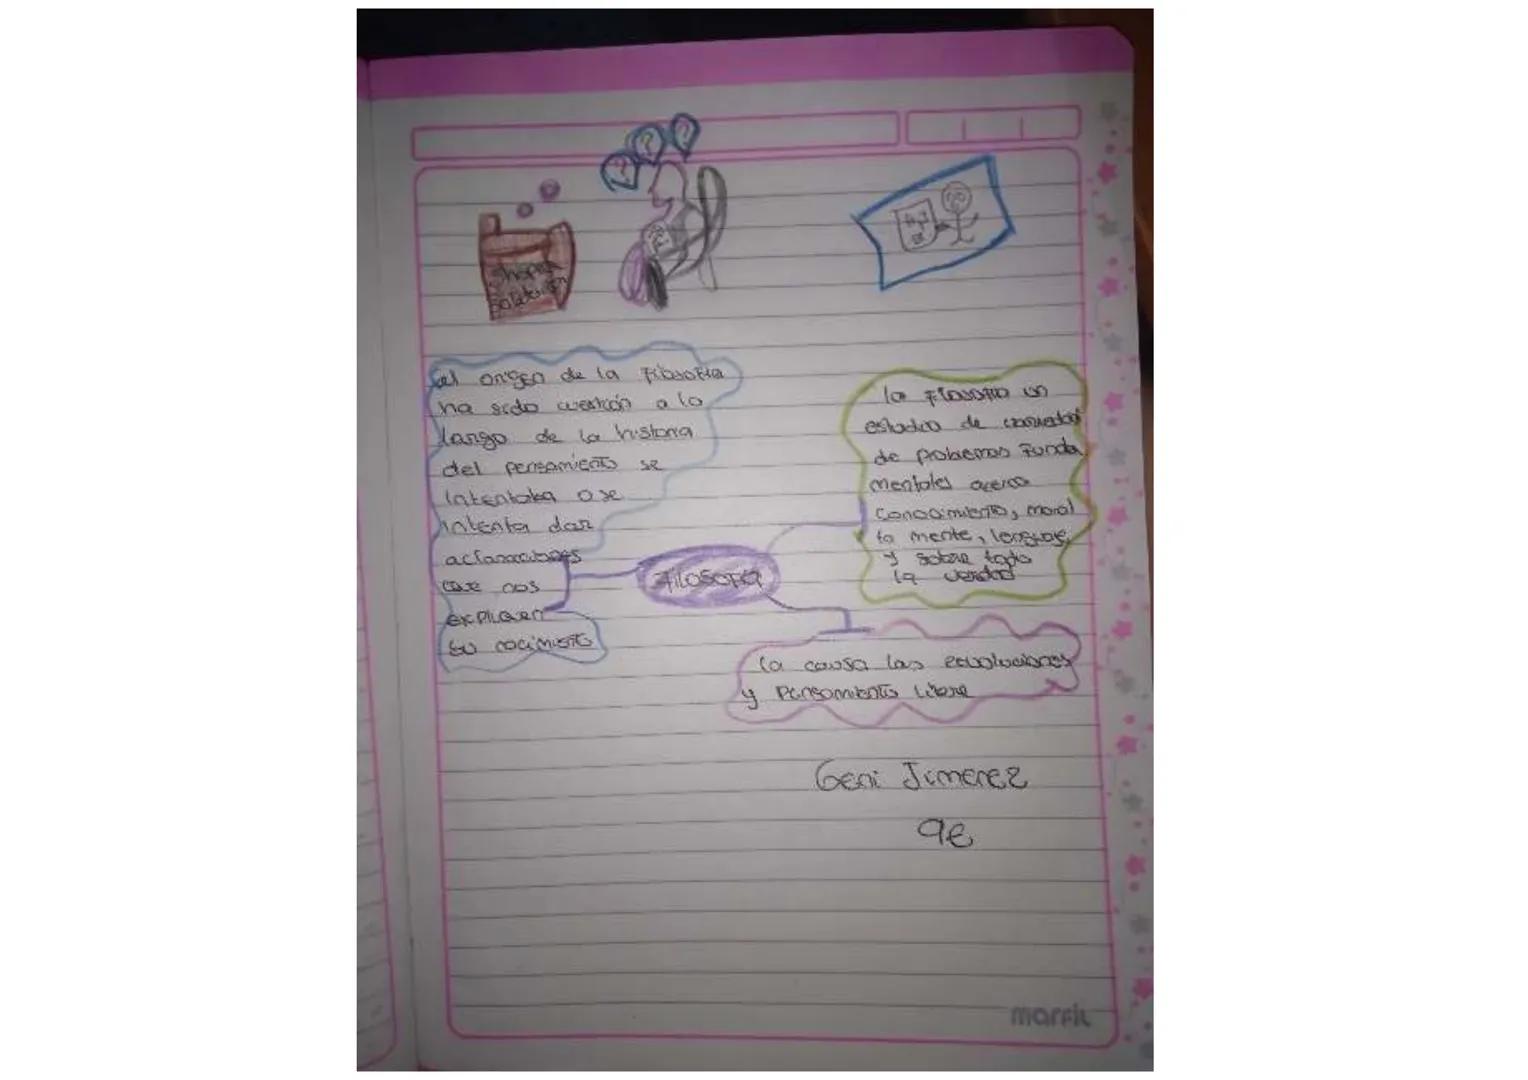 el origen de la Filosofia
ha sido cuestión a lo
largo de la historia
del pensamiento se
intentaba o se
intenta dar
aclaraciones
que nos
expliquen
su nacimiento
Filosofia
la Filosofia un
estudio de variedad
de problemas Funda
mentales acerca
conocimiento, moral
la mente, lenguaje,
y sobre todo
la verdad
la causa las revoluciones
y Pensamiento Libre
Geni Jimenez
9E
marfil